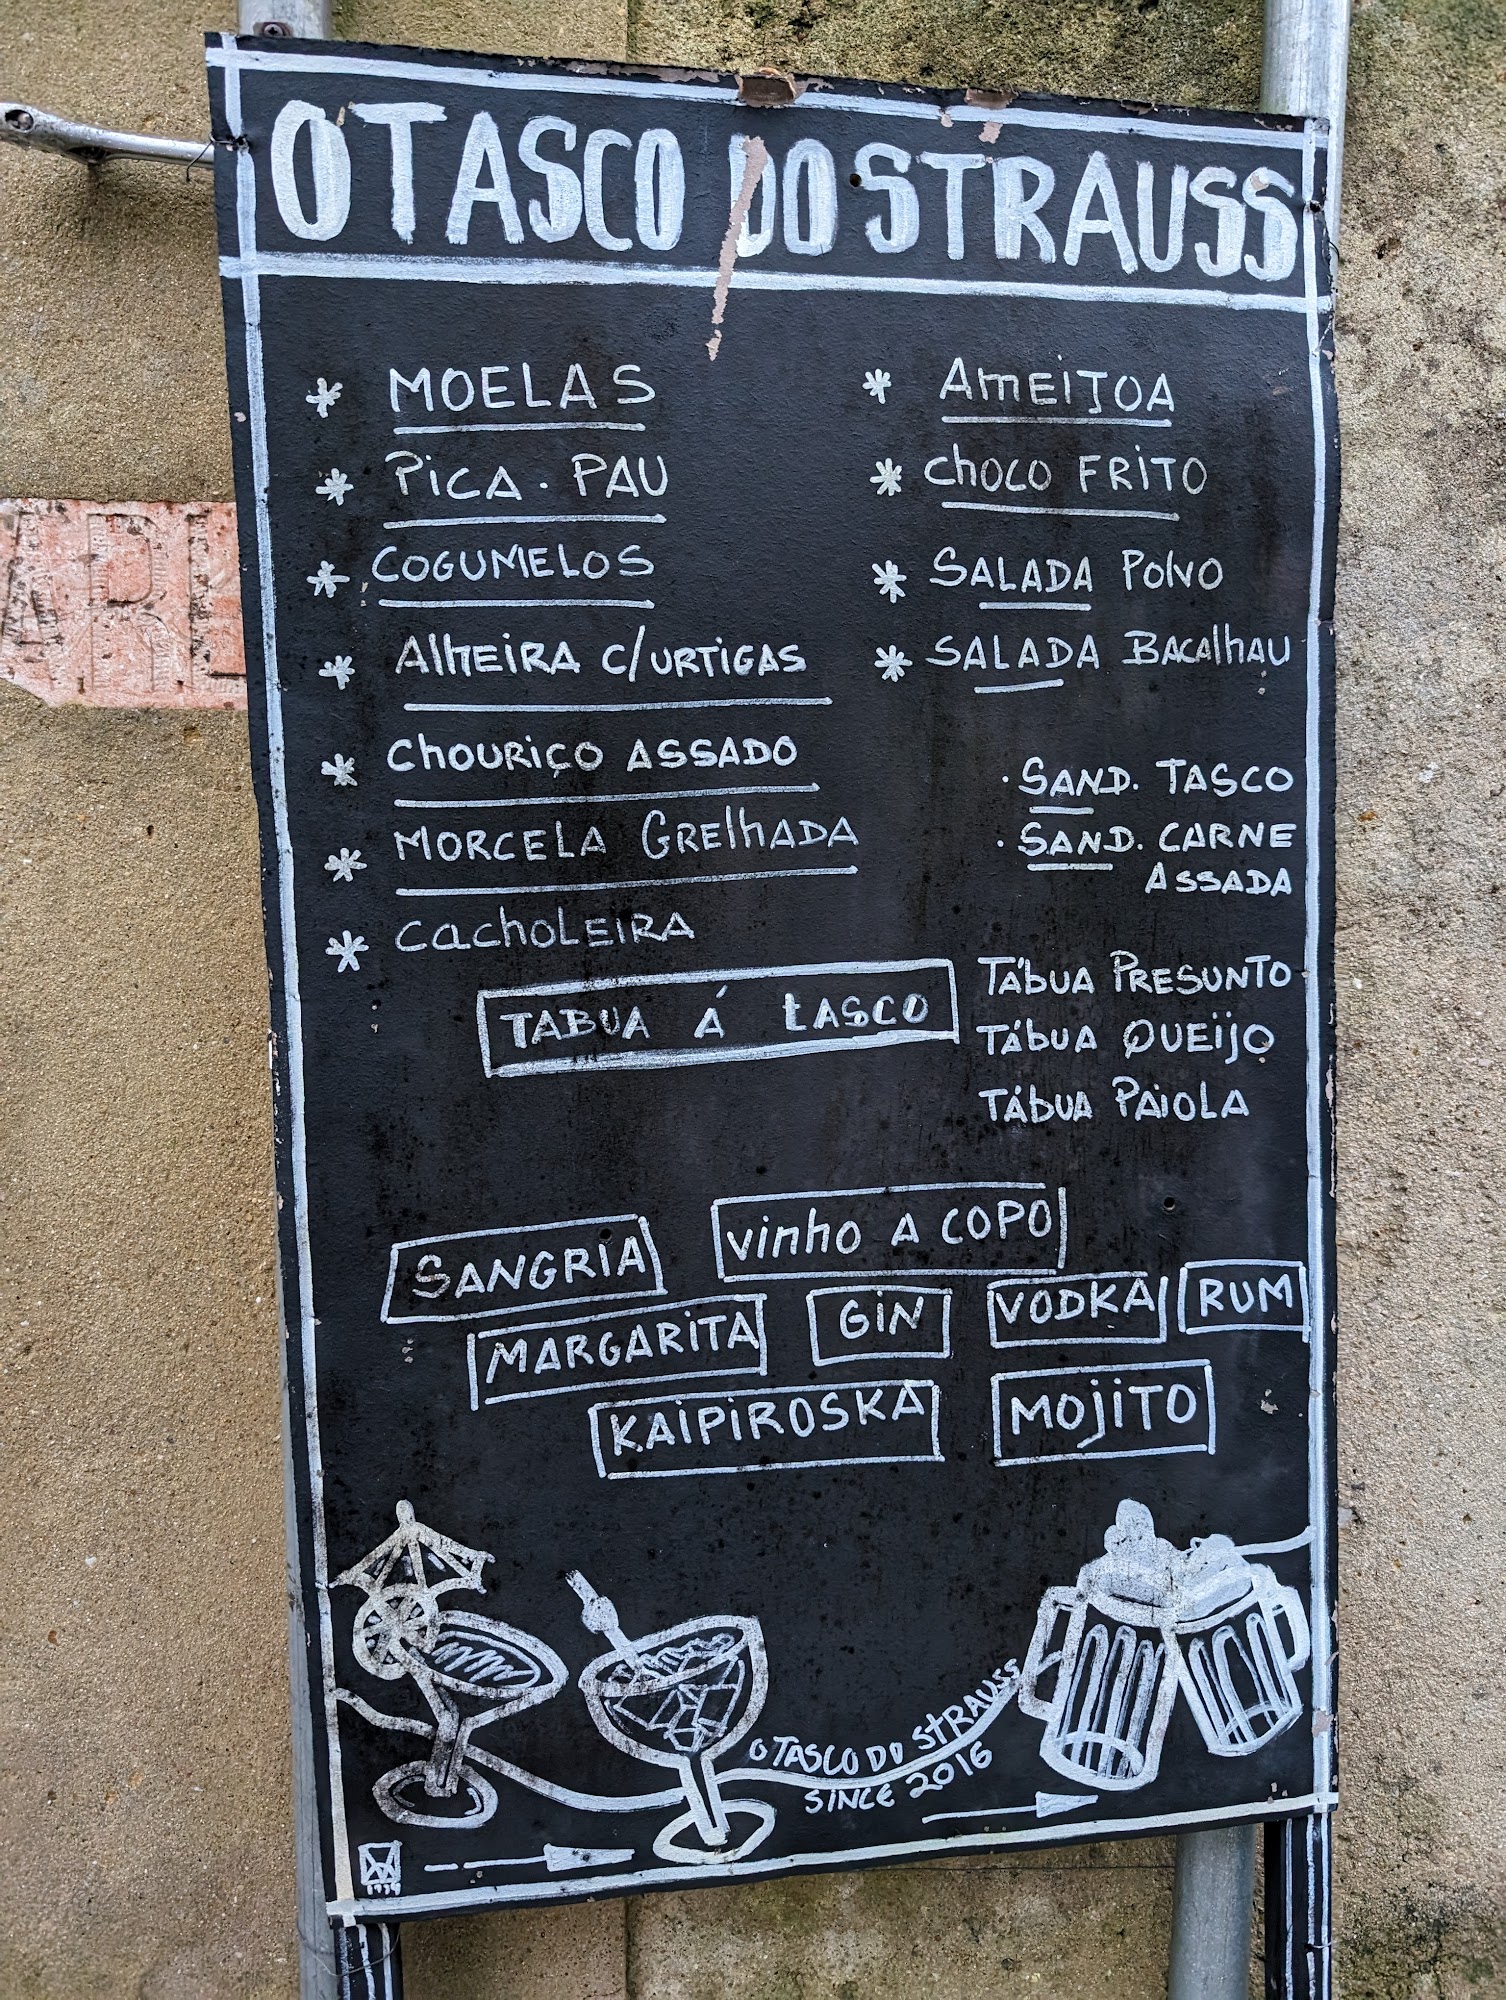 O TASCO DO STRAUSS
* MOELAS
* PICA . PAU
* COGUMELOS
* AlhEIRA C/URTIGAS
* ChOURIÇO ASSADO
* MORCELA GRElhADA
* CAChOLEIRA
TABUA Á tASCO
* AMEIJOA
* ChOCO FRITO
* SALADA POlVO
* SALADA BACAlhAU
· SAND. TASCO
· SAND. CARNE
ASSADA
TÁbUA PRESUNTO
TÁbUA QUEIJO
TÁbUA PAIOLA
SANGRIA
vinho A COPO
MARGARITA
GIN
VODKA
RUM
KAIPIROSKA
MOJITO
O TASCO DO StRAUSS
SINCE 2016
ARE